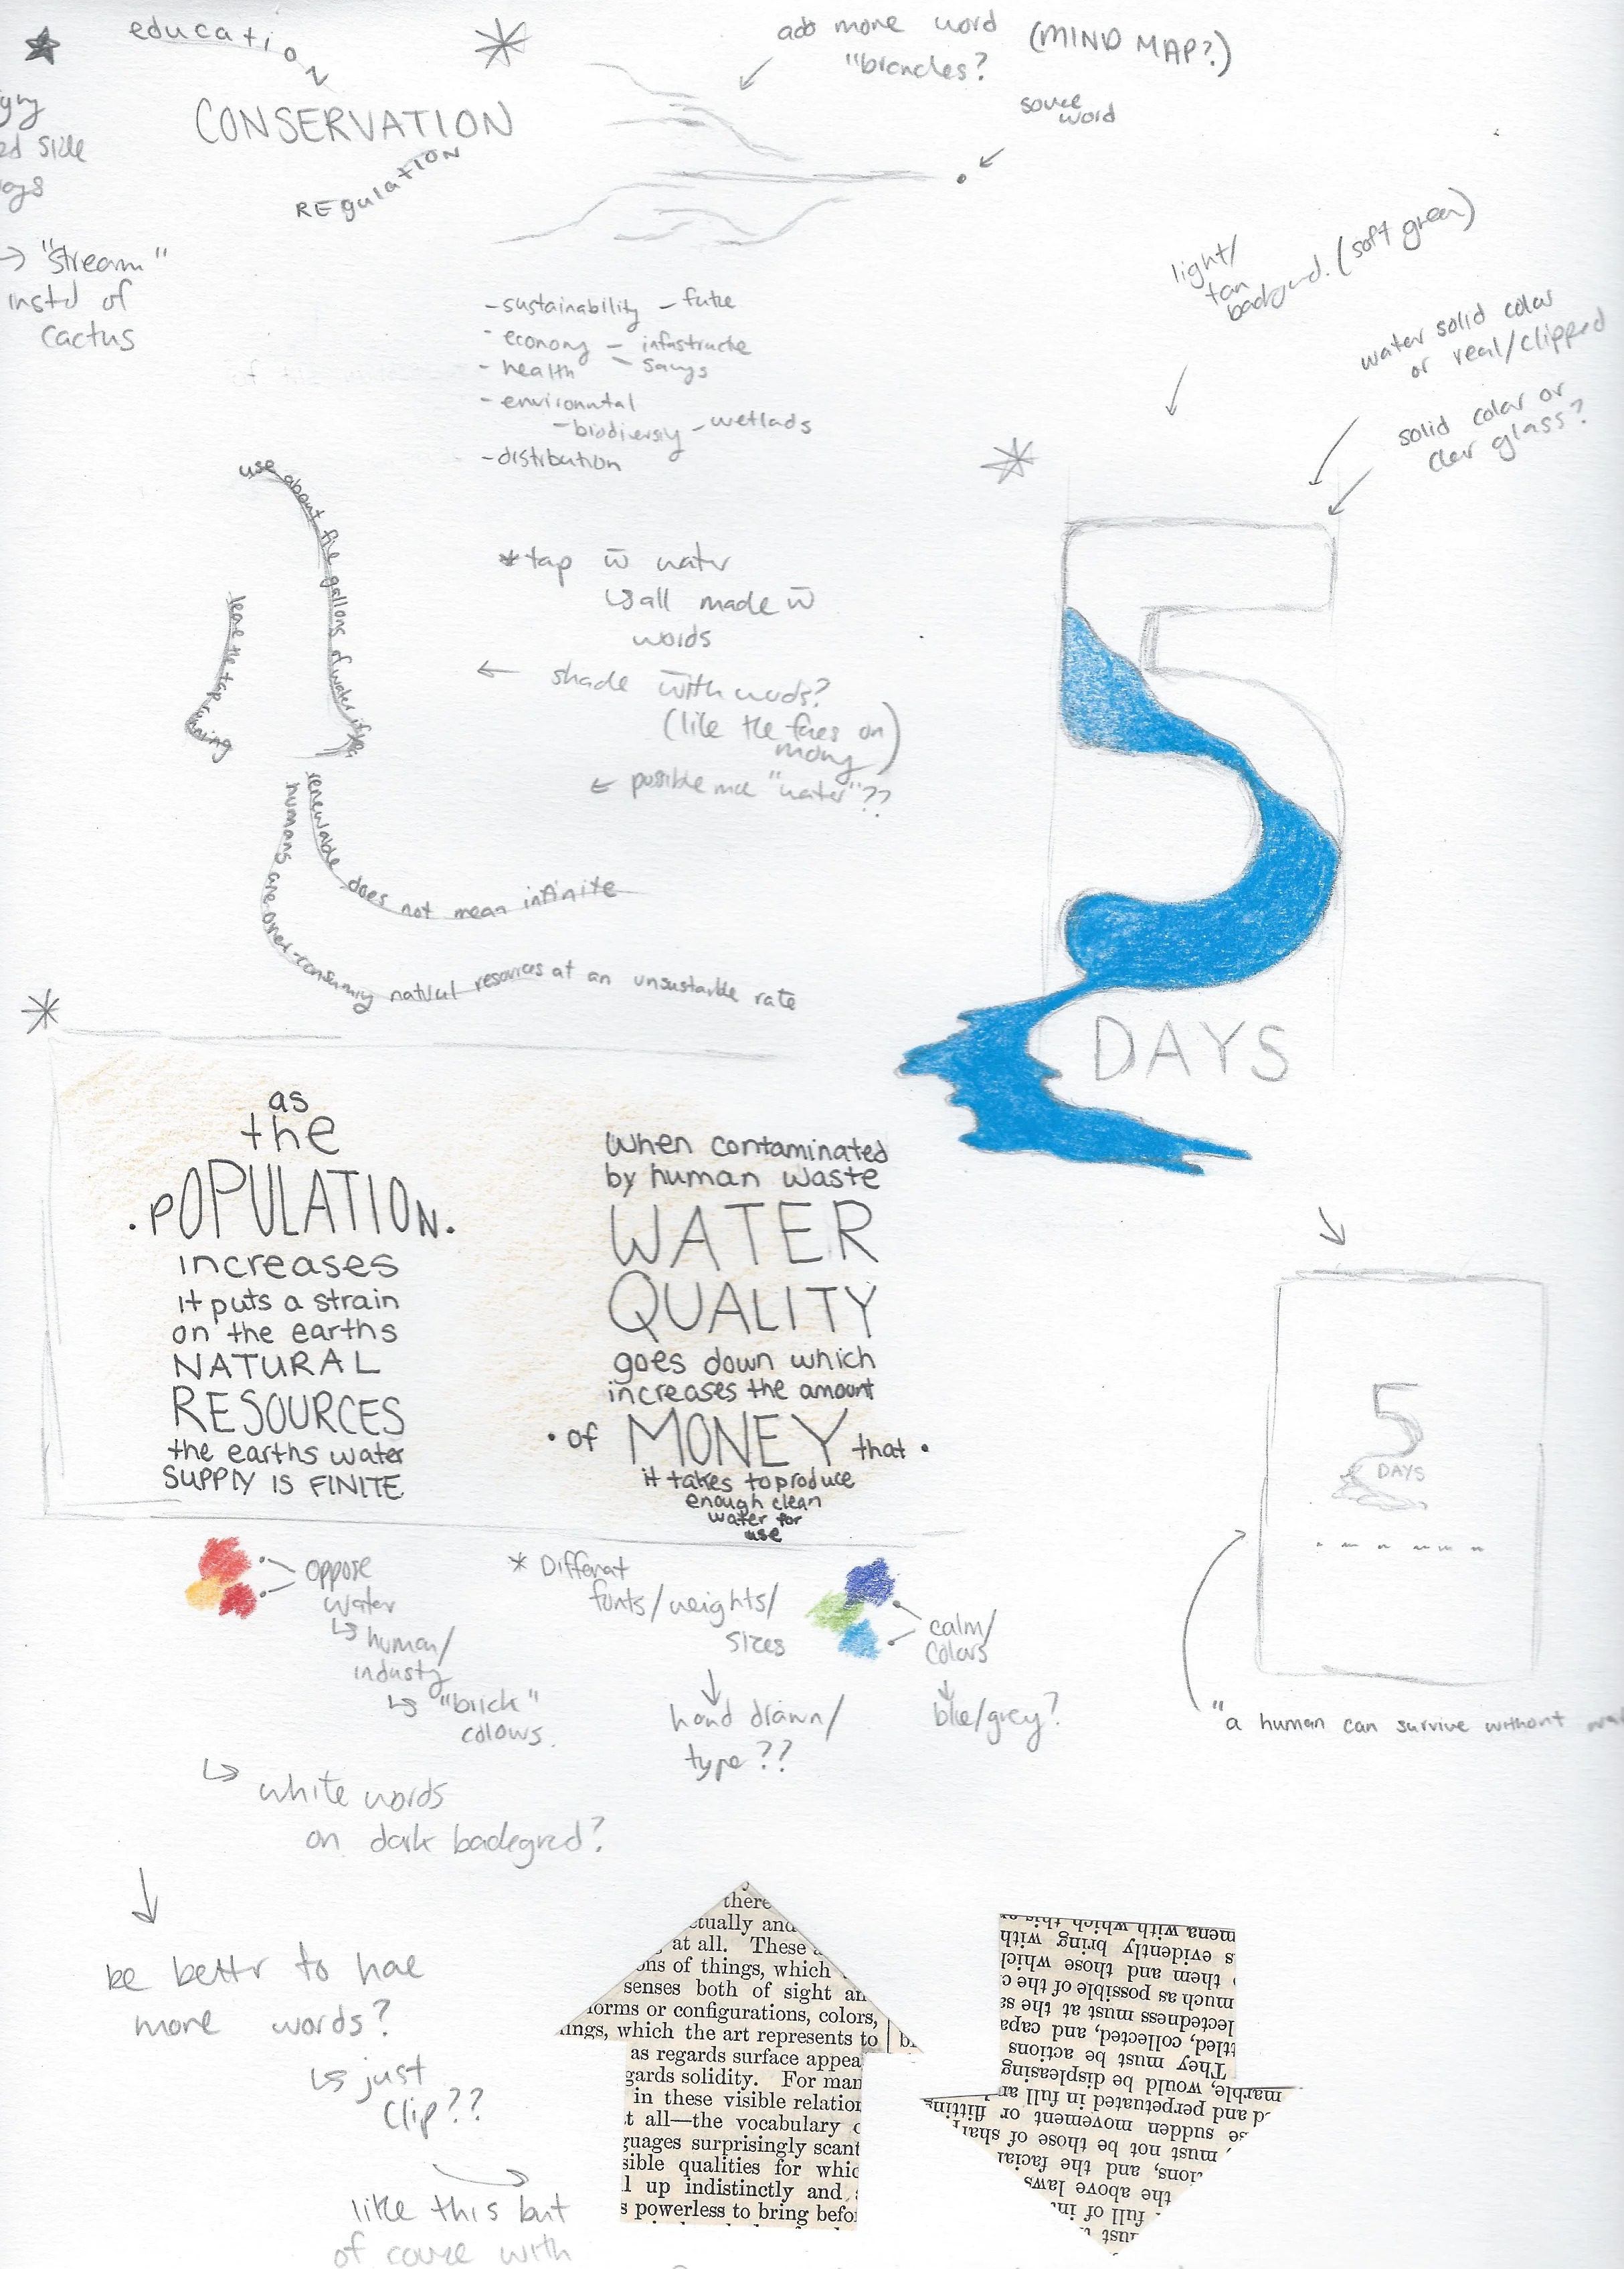 education
CONSERVATION
REgulatION
add more word
"brancles?
(MIND MAP?)
souce
word
ed side
→ "stream"
instd of
cactus
-sustainability - futue
- economy - infastructue
- health - savgs
- environmtal
-biodiversiy - wetlads
-distribution
light/
tan
backgrund. (soft green)
water solid color
or real/clipped
solid color or
clear glass?
use about five gallons of water if you
leave the tap running
*tap w̄ water
↳all made w̄
words
← shade with words?
(like the faces on
mony)
← possible mce "water"??
renewable does not mean infinite
humans are over-consuming natural resources at an unsustainble rate
5
DAYS
as
the
.POPULATION.
increases
it puts a strain
on the earths
NATURAL
RESOURCES
the earths water
SUPPLY IS FINITE
when contaminated
by human waste
WATER
QUALITY
goes down which
increases the amount
• of MONEY that •
it takes to produce
enough clean
water for
use
5
DAYS
"a human can survive without
oppose
water
↳ human/
industy
↳ "brick"
colours.
* Differnt
fonts/weights/
sizes
↓
hand drawn/
type??
calm/
colors
↓
blue/grey?
↳ white words
on dark backgrnd?
↓
be bettr to hae
more words?
↳ just
clip??
like this but
of couse with
there
ctually and
at all. These
ons of things, which
senses both of sight an
forms or configurations, colors,
ings, which the art represents to
as regards surface appea
gards solidity. For man
in these visible relation
t all—the vocabulary
guages surprisingly scant
sible qualities for whic
l up indistinctly and
s powerless to bring befor
full of in
the above laws
tions, and the facial
must not be those of sharp
se sudden movement or flitting
ed and perpetuated in full an
marble, would be displeasing
They must be actions
ttled, collected, and capa
lectedness must at the sa
much as possible of the c
them and those which
s evidently bring with
mena with which this